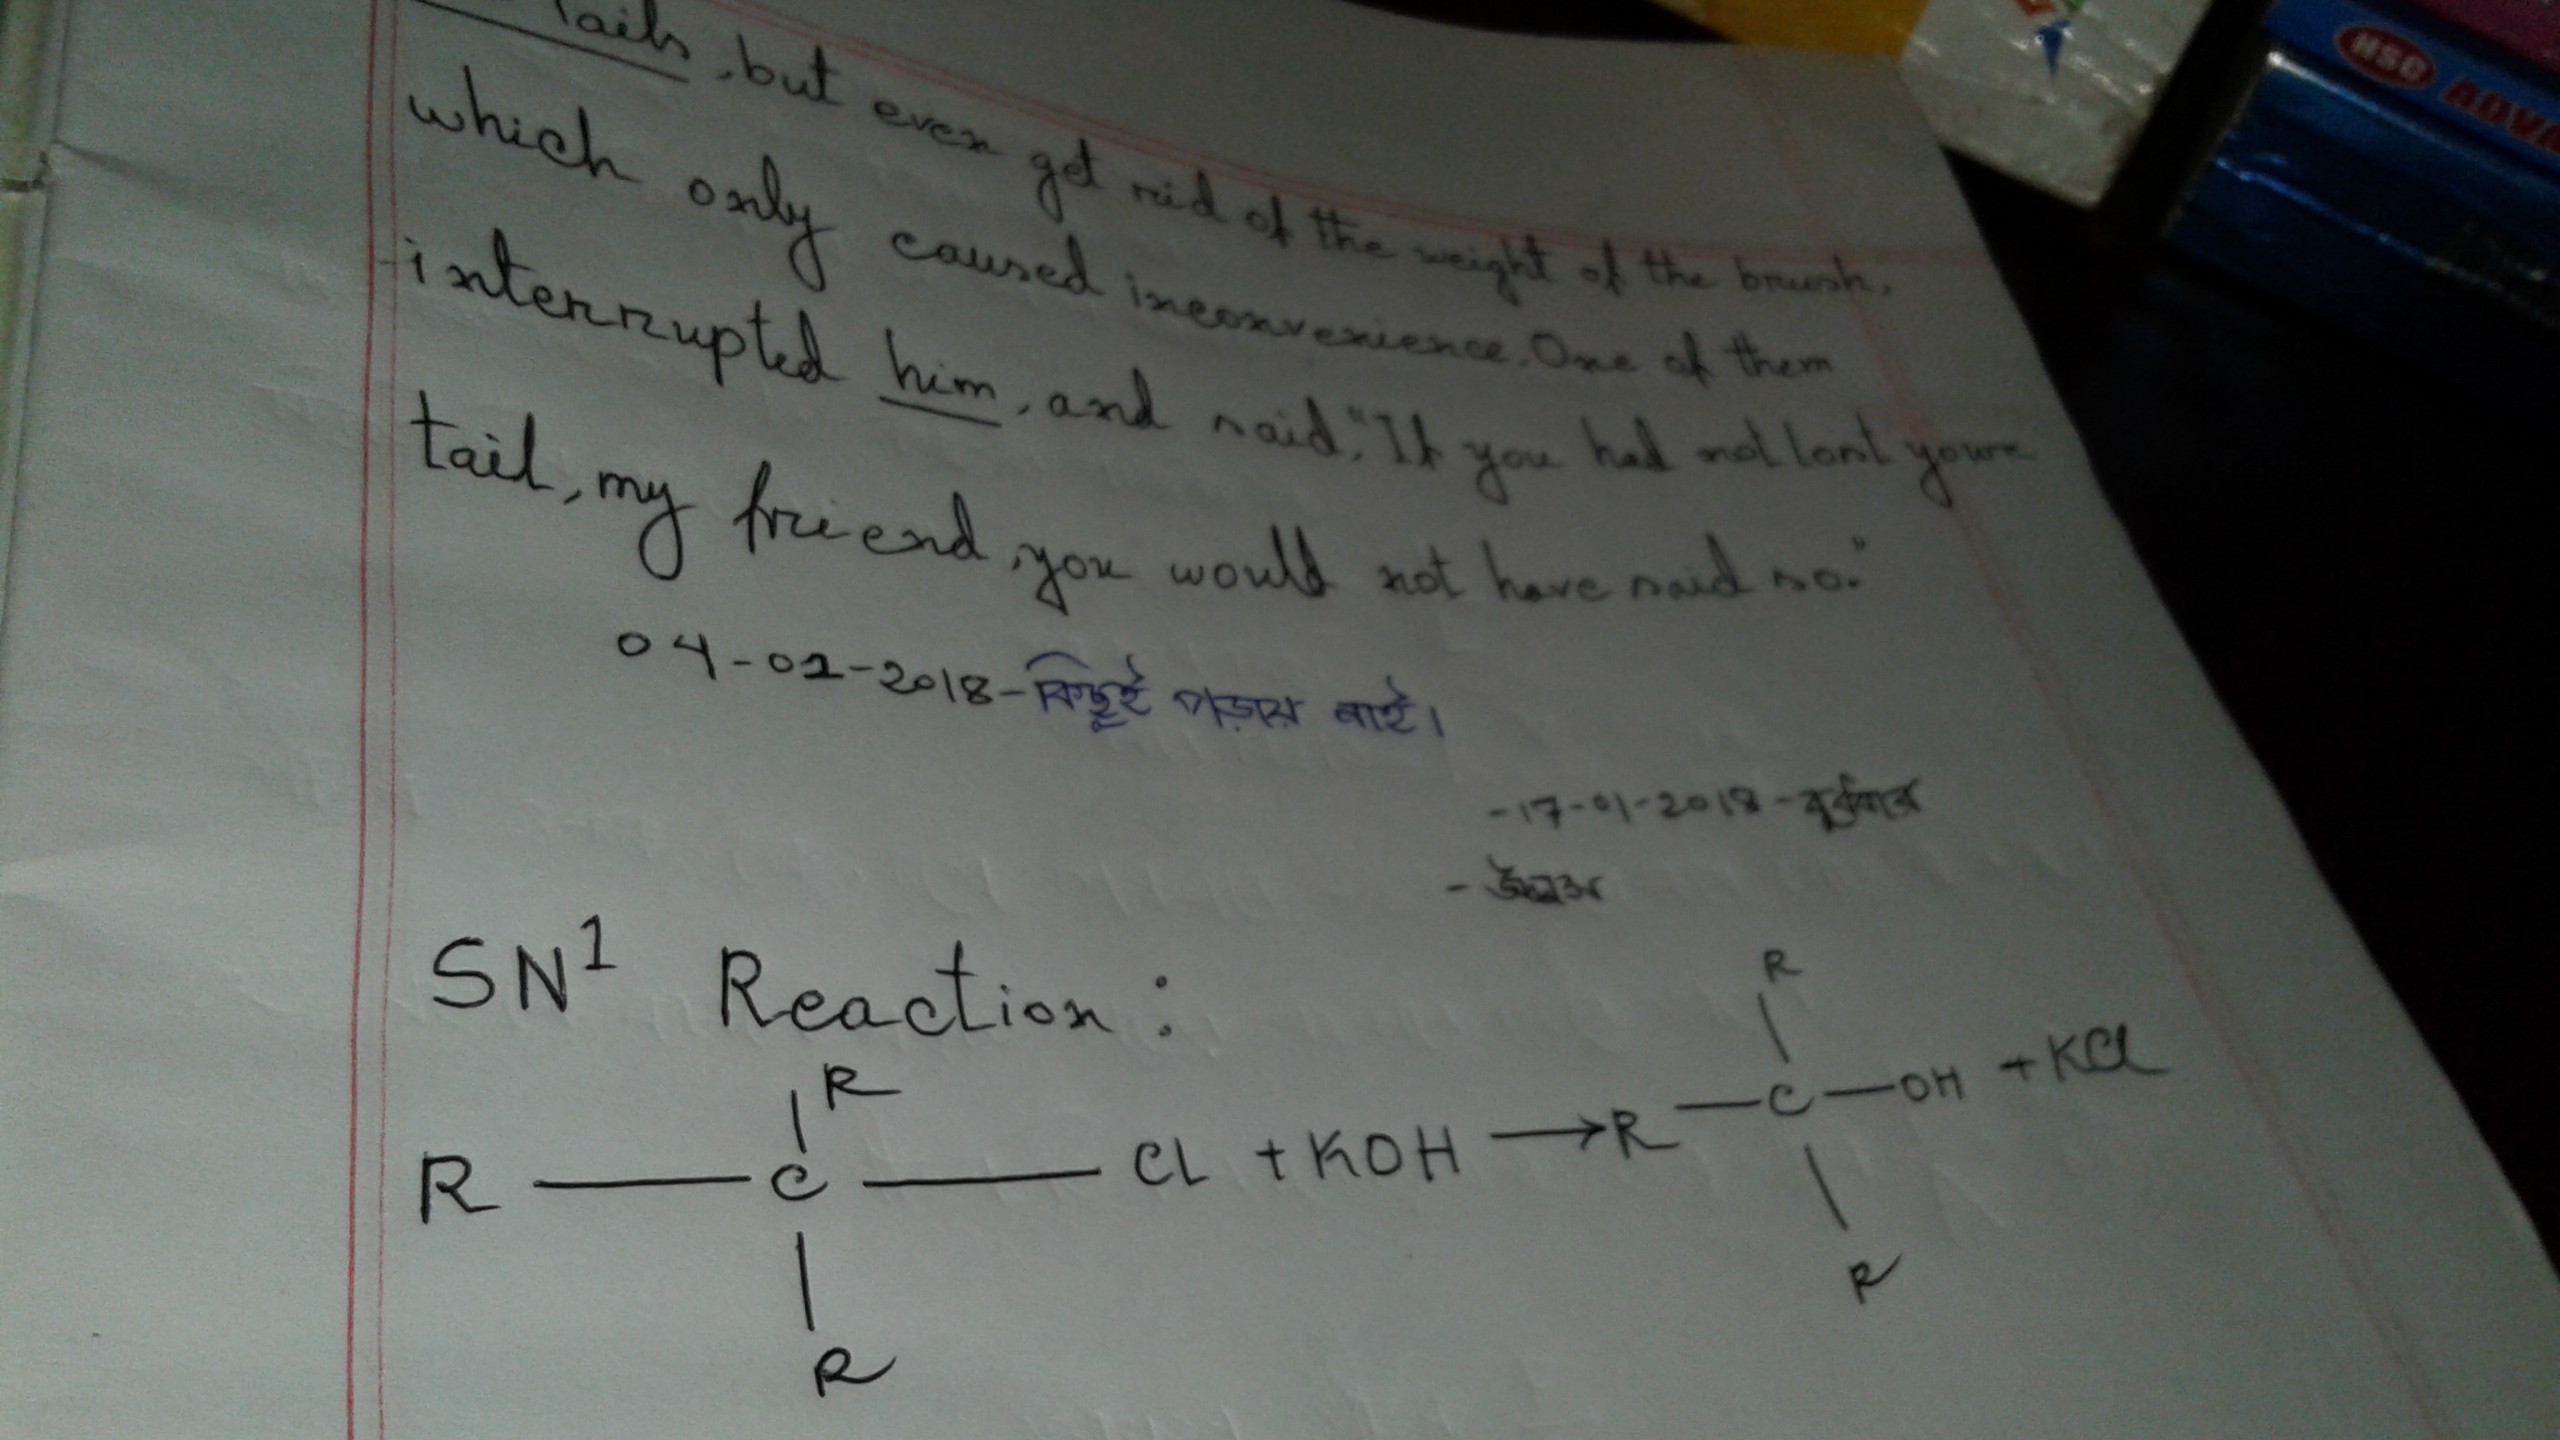 tails, but even get rid of the weight of the brush,
which only caused inconvenience. One of them
interrupted him, and said, "If you had not lost your
tail, my friend, you would not have said so."
04-02-2018-কিছুই পড়ায় নাই।
-17-01-2018-
SN¹ Reaction:
R
R — C — Cl + KOH → R — C — OH + KCl
R
R
R
HSC ADVA